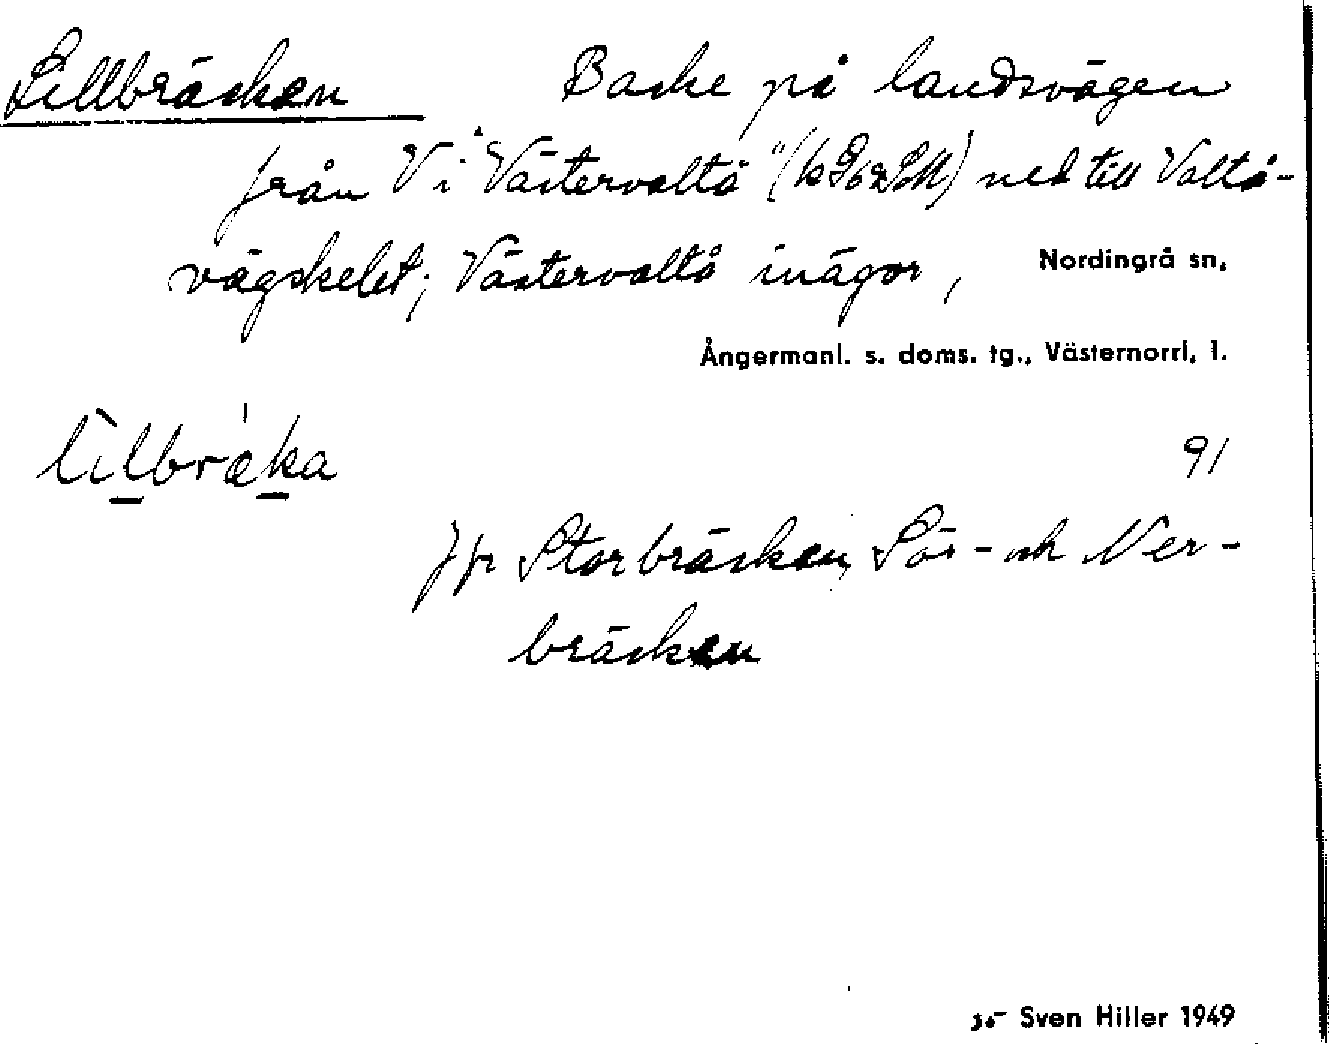 Lillbräcken Backe på landsvägen
från V i "Västervaltå" ned till Valtå-
vägskelet; Västervaltå inägor, Nordingrå sn,
Ångermanl. s. doms. tg., Västernorrl. l.
lìlbrá̀ka 91
Jfr Storbräcken, Sör- och Ner-
bräcken
Sven Hiller 1949